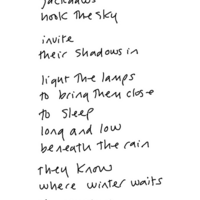 jackdaws
hook the sky
invite
their shadows in
light the lamps
to bring them close
to sleep
long and low
beneath the rain
they know
where winter waits